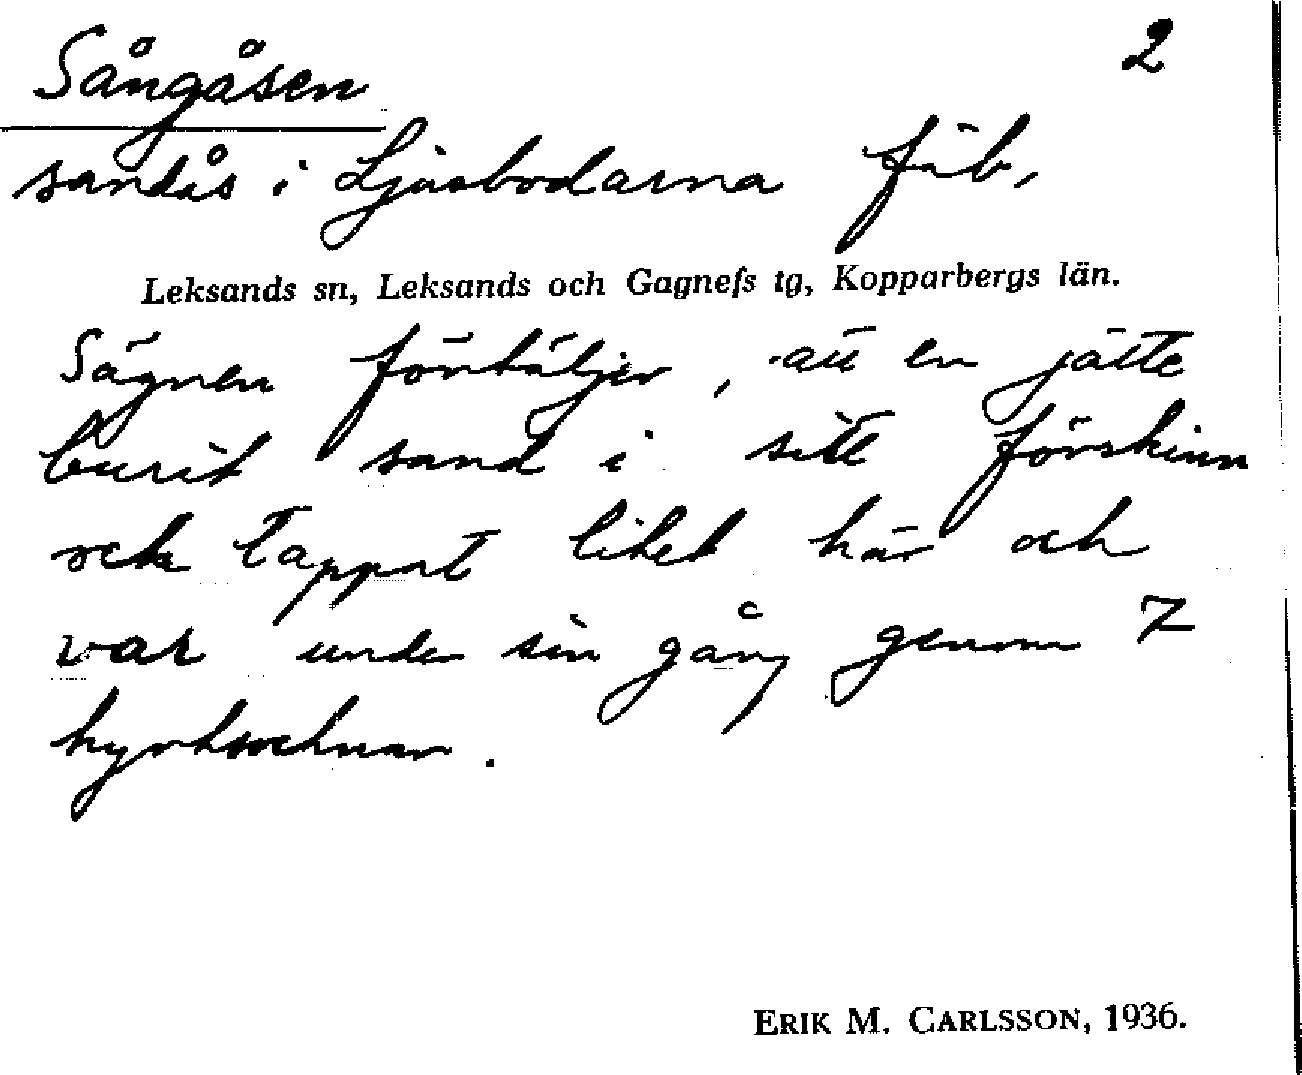 Sångåsen 2
sandås i Ljusbodarna fäb,
Leksands sn, Leksands och Gagnefs tg, Kopparbergs län.
Sägnen förtäljer, att en jätte
burit sand i sitt förskinn
och tappat litet här och
var under sin gång genom 7
kyrksocknar.
ERIK M. CARLSSON, 1936.